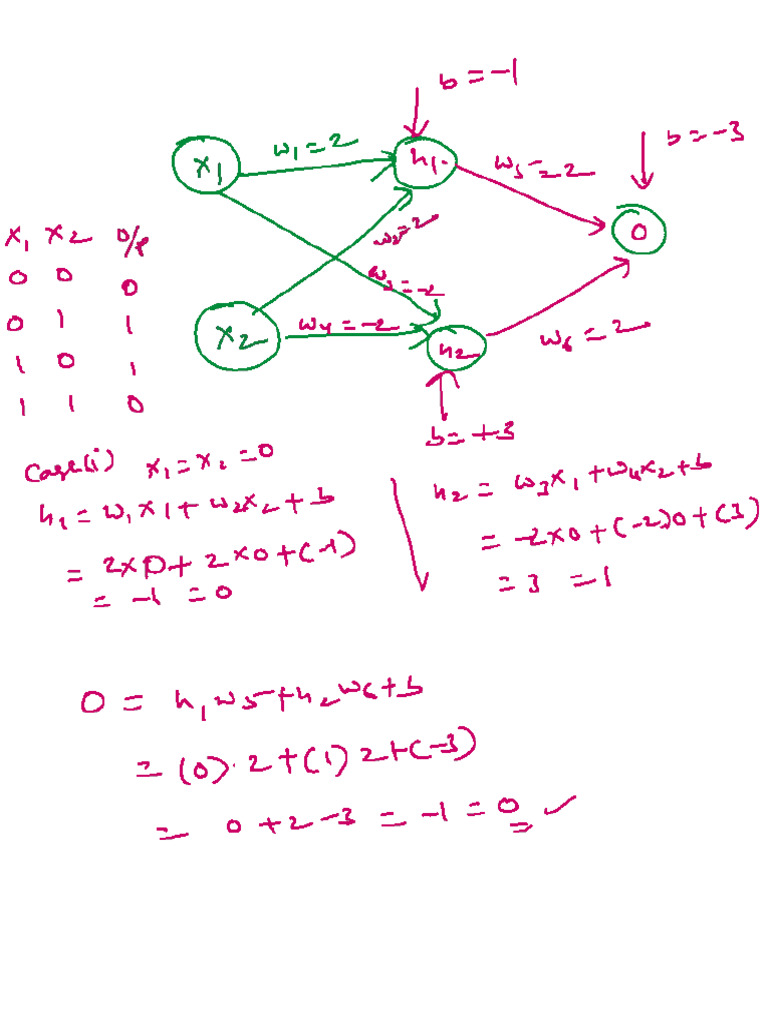 b = -1
b = -3
x1
w1 = 2
h1
w5 = 2
0
w2 = 2
w3 = -2
x2
w4 = -2
h2
w6 = 2
b = +3
x1 x2 O/p
0 0 0
0 1 1
1 0 1
1 1 0
Case(i) x1 = x2 = 0
h1 = w1x1 + w2x2 + b
= 2x0 + 2x0 + (-1)
= -1 = 0
h2 = w3x1 + w4x2 + b
= -2x0 + (-2)0 + (3)
= 3 = 1
O = h1w5 + h2w6 + b
= (0).2 + (1)2 + (-3)
= 0 + 2 - 3 = -1 = 0 ✓